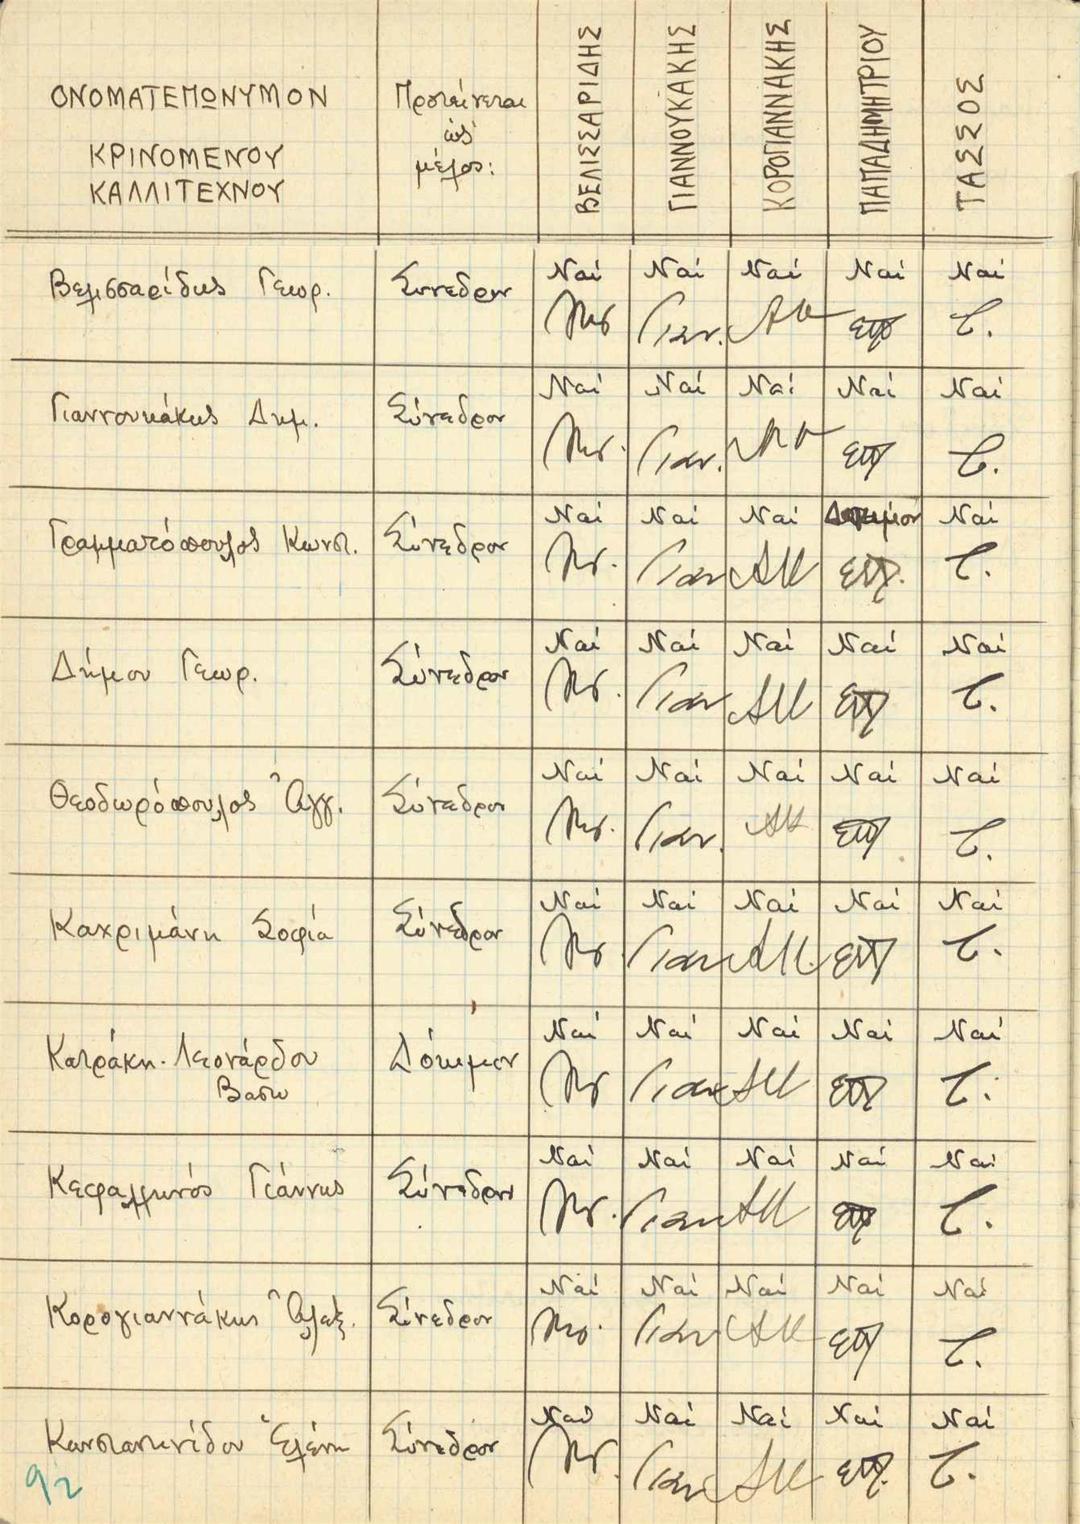 ΒΕΛΙΣΣΑΡΙΔΗΣ ΓΙΑΝΝΟΥΚΑΚΗΣ ΚΟΡΟΓΙΑΝΝΑΚΗΣ ΠΑΠΑΔΗΜΗΤΡΙΟΥ ΤΑΣΣΟΣ
ΟΝΟΜΑΤΕΠΩΝΥΜΟΝ Προτείνεται
ὡς
ΚΡΙΝΟΜΕΝΟΥ μέλος:
ΚΑΛΛΙΤΕΧΝΟΥ
Ναί Ναί Ναί Ναί Ναί
Βελισσαρίδης Γεωρ. Σύνεδρον
Γιαν. ΑΚ ΕΠ Τ.
Ναί Ναί Ναί Ναί Ναί
Γιαννουκάκης Δημ. Σύνεδρον
Γιαν. ΑΚ ΕΠ Τ.
Ναί Ναί Ναί Δόκιμον Ναί
Γραμματόπουλος Κωνστ. Σύνεδρον
Γιαν ΑΚ ΕΠ. Τ.
Ναί Ναί Ναί Ναί Ναί
Δήμου Γεωρ. Σύνεδρον
Γιαν ΑΚ ΕΠ Τ.
Ναί Ναί Ναί Ναί Ναί
Θεοδωρόπουλος Ἀγγ. Σύνεδρον
Γιαν. ΑΚ ΕΠ Τ.
Ναί Ναί Ναί Ναί Ναί
Καχριμάνη Σοφία Σύνεδρον
Γιαν ΑΚ ΕΠ Τ.
Ναί Ναί Ναί Ναί Ναί
Κατράκη-Λεονάρδου Δόκιμον
Βάσω Γιαν ΑΚ ΕΠ Τ.
Ναί Ναί Ναί Ναί Ναί
Κεφαλληνός Γιάννης Σύνεδρον
Γιαν ΑΚ ΕΠ Τ.
Ναί Ναί Ναί Ναί Ναί
Κορογιαννάκης Ἀλεξ. Σύνεδρον
Γιαν ΑΚ ΕΠ Τ.
Ναί Ναί Ναί Ναί Ναί
Κωνσταντινίδου Ἑλένη Σύνεδρον
Γιαν ΑΚ ΕΠ. Τ.
92